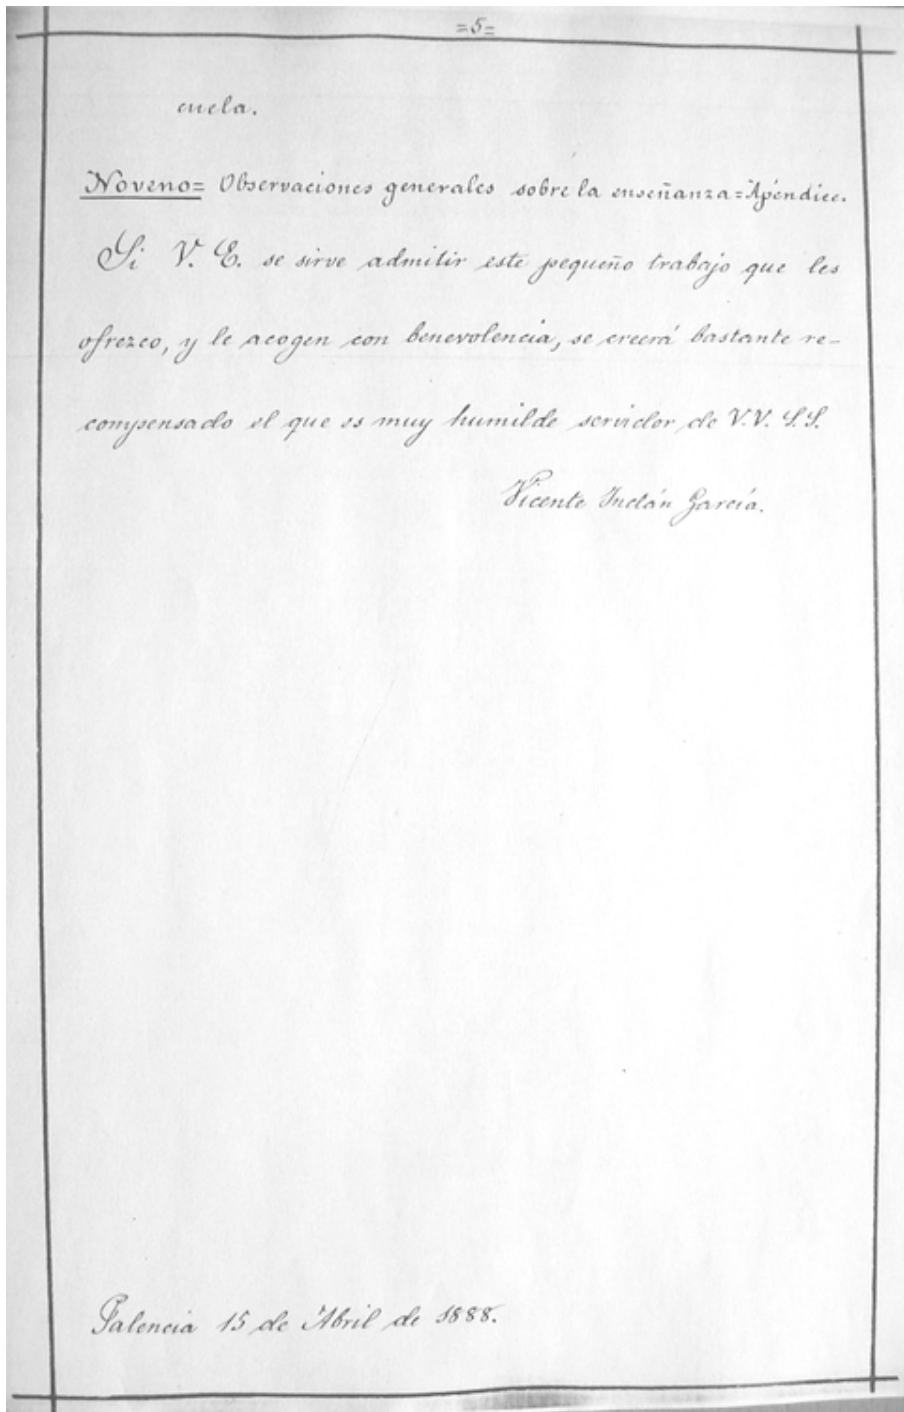 =5=
cuela.
Noveno= Observaciones generales sobre la enseñanza=Apéndice.
Si V. E. se sirve admitir este pequeño trabajo que les
ofrezco, y le acogen con benevolencia, se creerá bastante re-
compensado el que es muy humilde servidor de V.V. S.S.
Vicente Inclán García.
Palencia 15 de Abril de 1888.